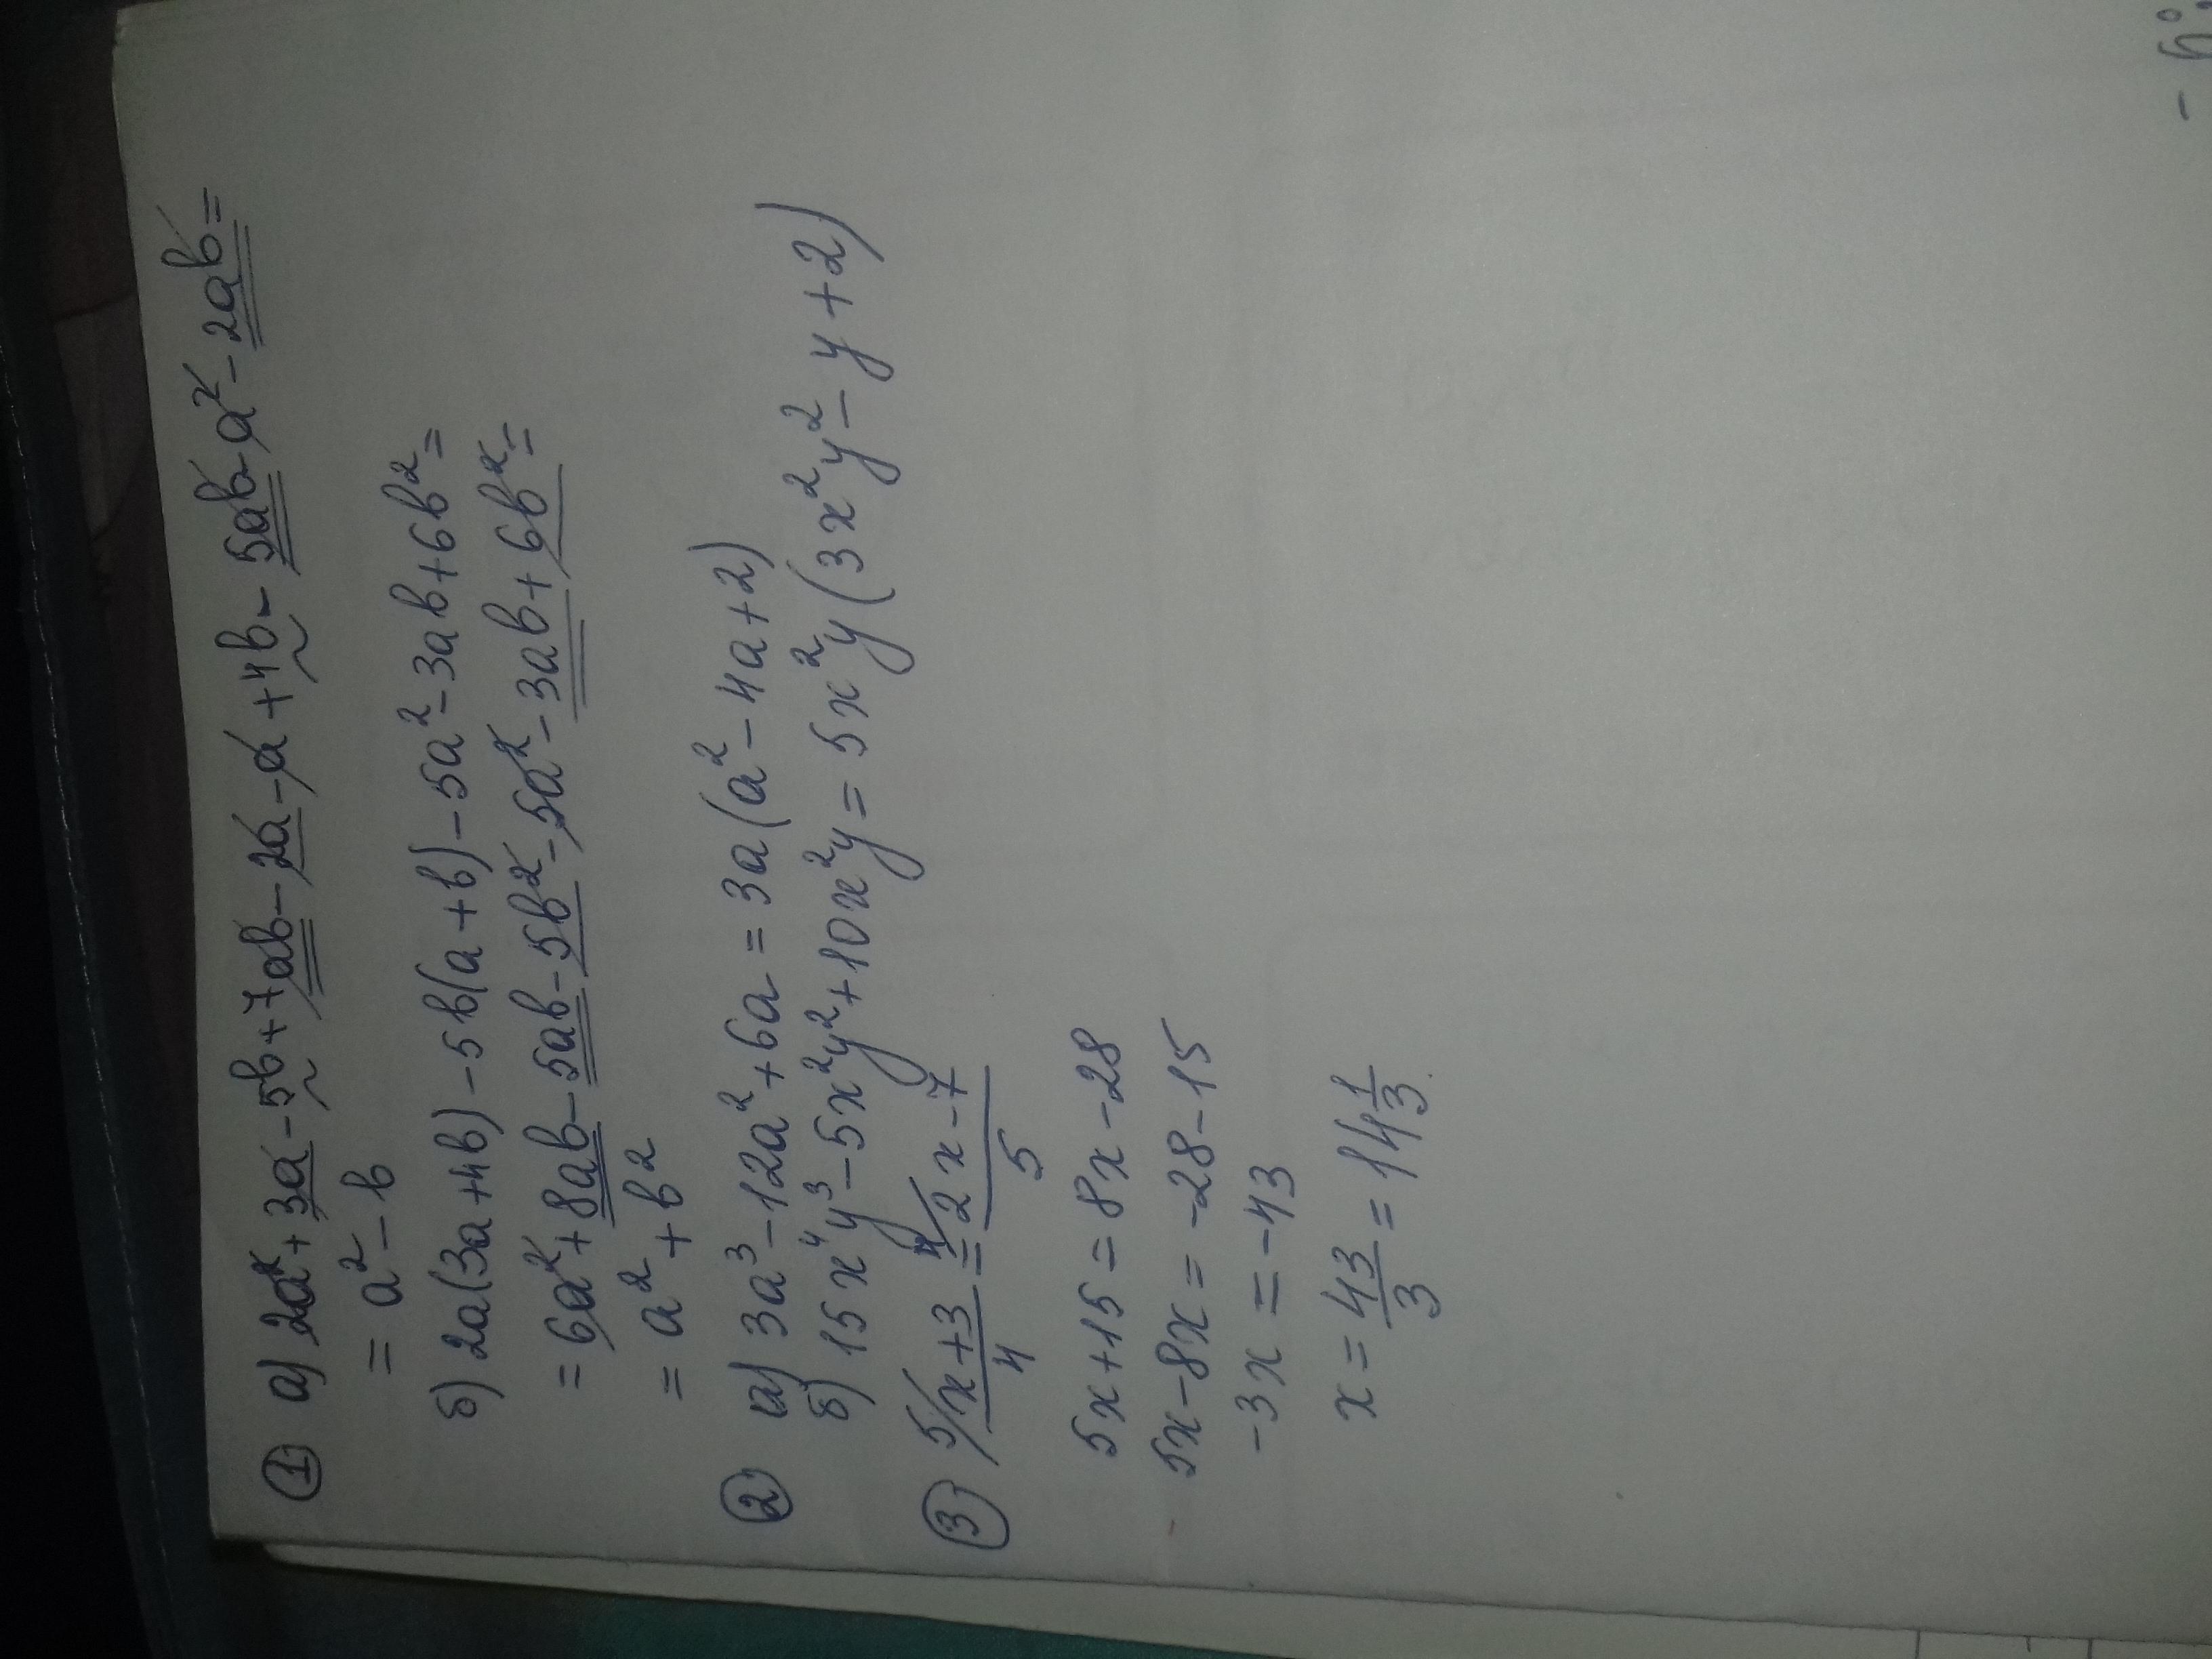 ① а) 2a² + 3a - 5b + 7ab - 2a - a + 4b - 5ab - a² - 2ab =
= a² - b
б) 2a(3a + 4b) - 5b(a + b) - 5a² - 3ab + 6b² =
= 6a² + 8ab - 5ab - 5b² - 5a² - 3ab + 6b² =
= a² + b²
② а) 3a³ - 12a² + 6a = 3a(a² - 4a + 2)
б) 15x⁴y³ - 5x²y² + 10x²y = 5x²y(3x²y² - y + 2)
③ 5/ (x + 3)/4 = 4/ (2x - 7)/5
5x + 15 = 8x - 28
5x - 8x = -28 - 15
-3x = -43
x = 43/3 = 14 1/3